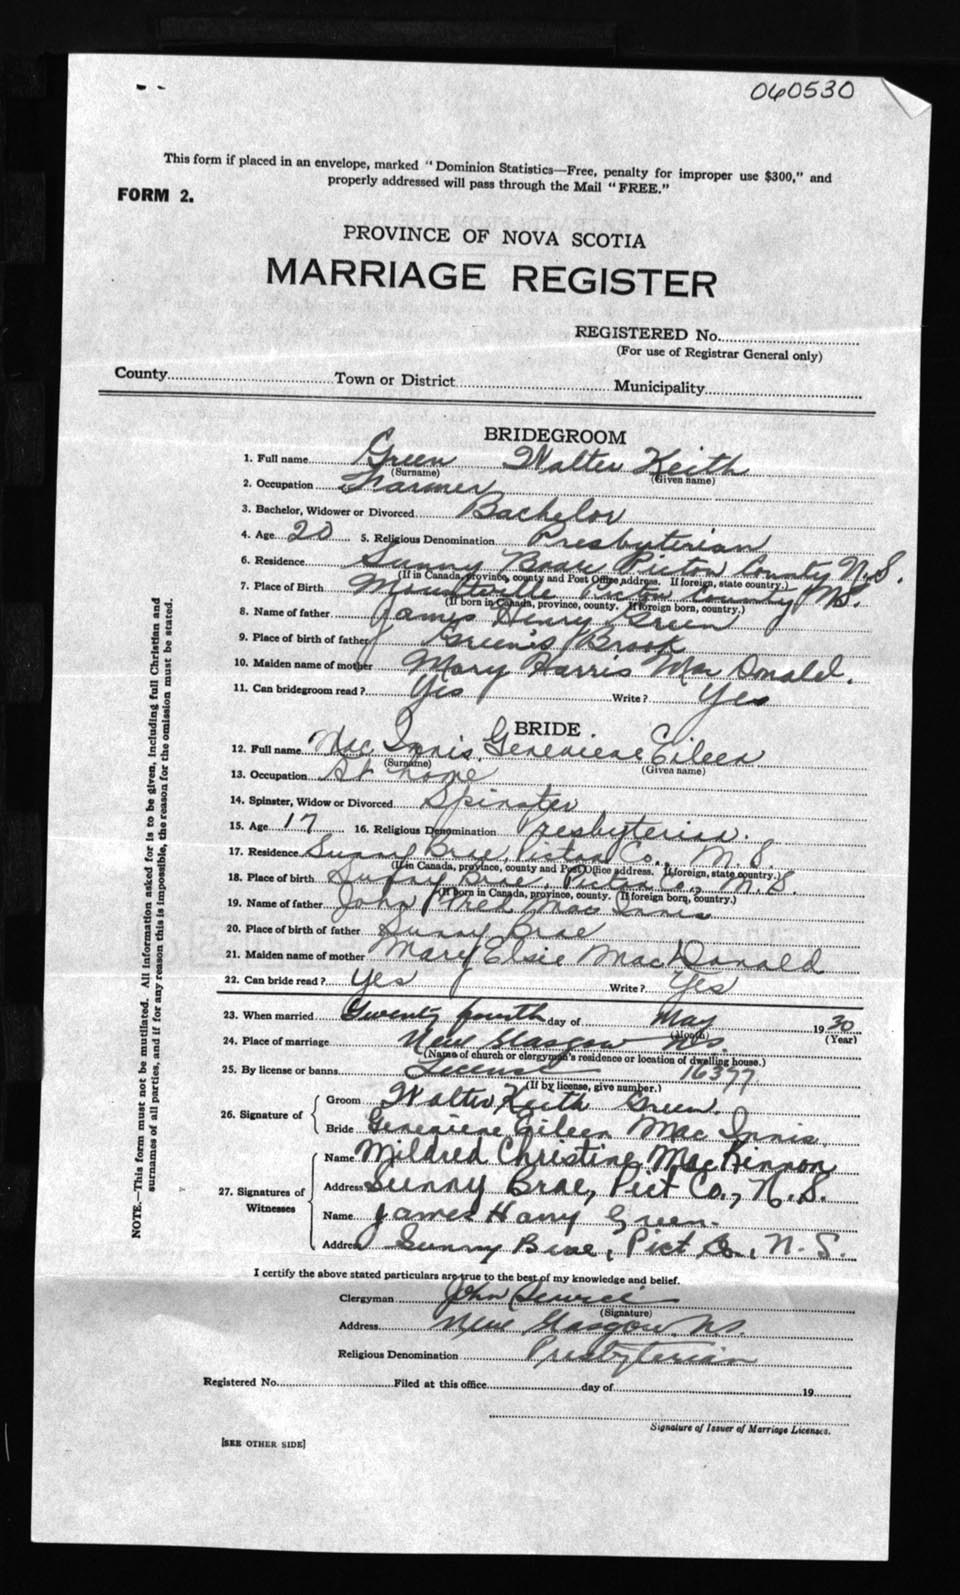 060530
This form if placed in an envelope, marked "Dominion Statistics—Free, penalty for improper use $300," and
properly addressed will pass through the Mail "FREE."
FORM 2.
PROVINCE OF NOVA SCOTIA
MARRIAGE REGISTER
REGISTERED No.
(For use of Registrar General only)
County Town or District Municipality
BRIDEGROOM
1. Full name Green Walter Keith
(Surname) (Given name)
2. Occupation Farmer
3. Bachelor, Widower or Divorced Bachelor
4. Age 20 5. Religious Denomination Presbyterian
6. Residence Sunny Brae Pictou County N.S.
(If in Canada, province, county and Post Office address. If foreign, state country.)
7. Place of Birth Pictou County N.S.
(If born in Canada, province, county. If foreign born, country.)
8. Name of father James Henry Green
9. Place of birth of father Green's Brook
10. Maiden name of mother Mary Harris Mac Donald.
11. Can bridegroom read? Yes Write? Yes
BRIDE
12. Full name Mac Innis, Genevieve Eileen
(Surname) (Given name)
13. Occupation At home
14. Spinster, Widow or Divorced Spinster
15. Age 17 16. Religious Denomination Presbyterian.
17. Residence Sunny Brae, Pictou Co., N.S.
(If in Canada, province, county and Post Office address. If foreign, state country.)
18. Place of birth Sunny Brae, Pictou Co., N.S.
(If born in Canada, province, county. If foreign born, country.)
19. Name of father John Fred Mac Innis
20. Place of birth of father Sunny Brae
21. Maiden name of mother Mary Elsie MacDonald
22. Can bride read? Yes Write? Yes
23. When married Twenty fourth day of May 1930
(Month) (Year)
24. Place of marriage New Glasgow N.S.
(Name of church or clergyman's residence or location of dwelling house.)
25. By license or banns. License 16377
(If by license, give number.)
26. Signature of Groom Walter Keith Green.
Bride Genevieve Eileen Mac Innis.
27. Signatures of Witnesses Name Mildred Christine MacKinnon
Address Sunny Brae, Pict Co., N.S.
Name James Harry Green.
Address Sunny Brae, Pict Co., N.S.
I certify the above stated particulars are true to the best of my knowledge and belief.
Clergyman John
(Signature)
Address New Glasgow, N.S.
Religious Denomination Presbyterian
Registered No. Filed at this office day of 19
Signature of Issuer of Marriage Licenses.
[SEE OTHER SIDE]
NOTE.—This form must not be mutilated. All information asked for is to be given, including full Christian and
surnames of all parties, and if for any reason this is impossible, the reason for the omission must be stated.